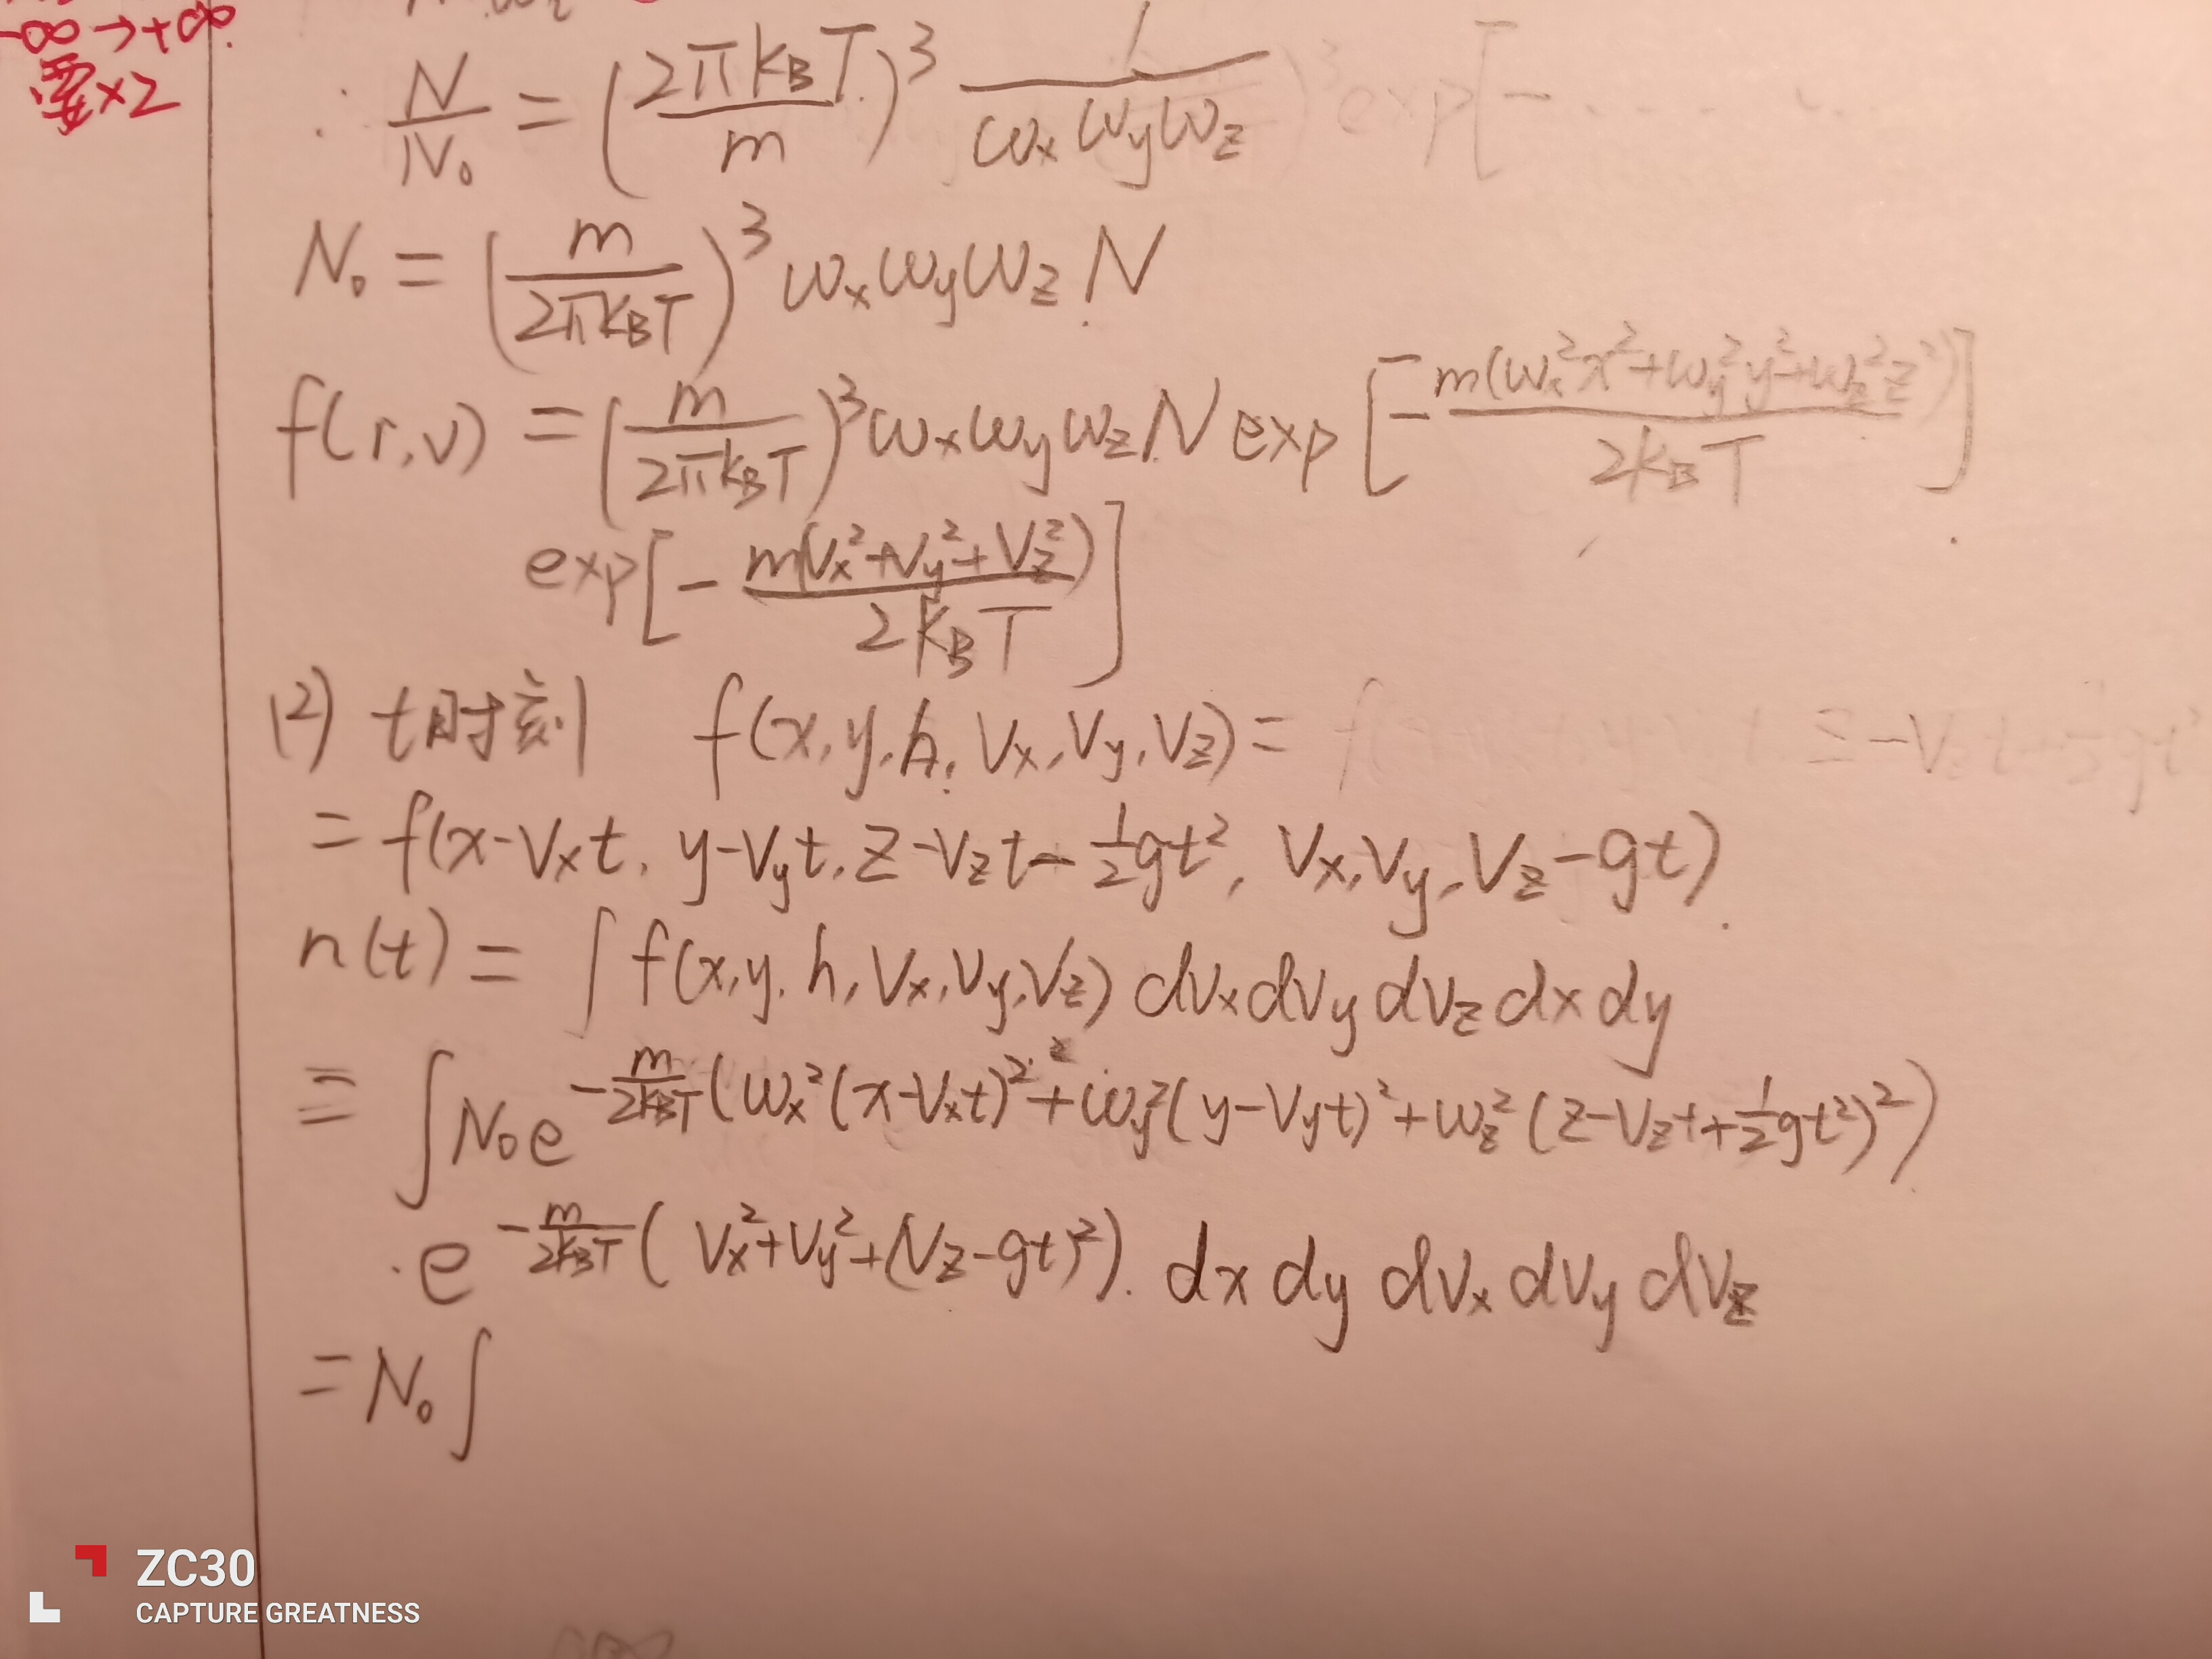 -∞→+∞.
要×2
∴ N/N₀ = (2πk_BT/m)³ 1/(ω_xω_yω_z)
N₀ = (m/2πk_BT)³ ω_xω_yω_z N
f(r,v) = (m/2πk_BT)³ ω_xω_yω_z N exp[-m(ω_x²x²+ω_y²y²+ω_z²z²)/2k_BT]
exp[-m(v_x²+v_y²+v_z²)/2k_BT]
(2) t时刻 f(x,y,h,v_x,v_y,v_z)=
= f(x-v_xt, y-v_yt, z-v_zt-½gt², v_x,v_y,v_z-gt)
n(t) = ∫f(x,y,h,v_x,v_y,v_z) dv_xdv_ydv_zdxdy
= ∫N₀e^{-m/2k_BT(ω_x²(x-v_xt)²+ω_y²(y-v_yt)²+ω_z²(z-v_zt+½gt²)²)}
·e^{-m/2k_BT(v_x²+v_y²+(v_z-gt)²)} dx dy dv_x dv_y dv_z
= N₀∫
ZC30
CAPTURE GREATNESS